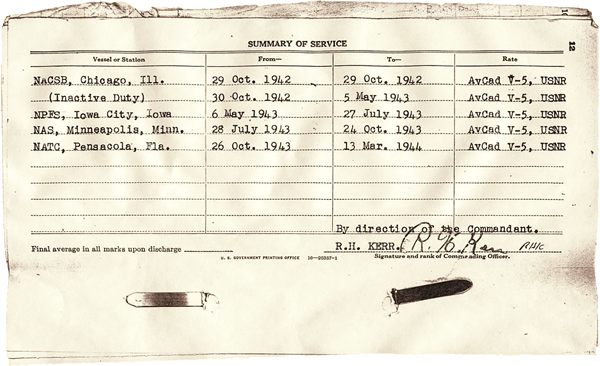 12
SUMMARY OF SERVICE
Vessel or Station From— To— Rate
NACSB, Chicago, Ill. 29 Oct. 1942 29 Oct. 1942 AvCad V-5, USNR
(Inactive Duty) 30 Oct. 1942 5 May 1943 AvCad V-5, USNR
NPFS, Iowa City, Iowa 6 May 1943 27 July 1943 AvCad V-5, USNR
NAS, Minneapolis, Minn. 28 July 1943 24 Oct. 1943 AvCad V-5, USNR
NATC, Pensacola, Fla. 26 Oct. 1943 13 Mar. 1944 AvCad V-5, USNR
By direction of the Commandant.
Final average in all marks upon discharge R.H. KERR. R. H. Kerr
U. S. GOVERNMENT PRINTING OFFICE 16—20357-1 Signature and rank of Commanding Officer.